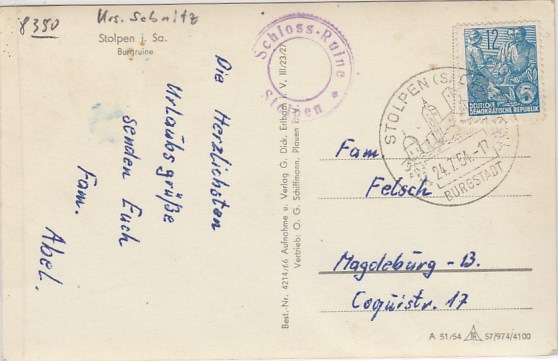 8350
Krs. Sebnitz
Stolpen i. Sa.
Burgruine
Die Herzlichsten
Urlaubsgrüße
senden Euch
Fam. Abel.
Schloss-Ruine
Stolpen
Best.-Nr. 4214/66 Aufnahme u. Verlag G. Dick, V, III/23/27
Vertrieb: O. G. Schiffmann, Plauen
12
DEUTSCHE
DEMOKRATISCHE REPUBLIK
STOLPEN
24.7.54.-17
BURGSTADT
Fam.
Felsch
Magdeburg - B.
Coquistr. 17
A 51/54 57/974/4100